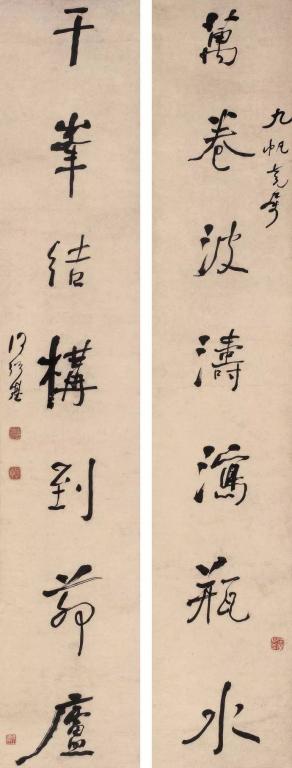 萬卷波濤瀉瓶水
九帆
千峯結構到茆廬
何紹基